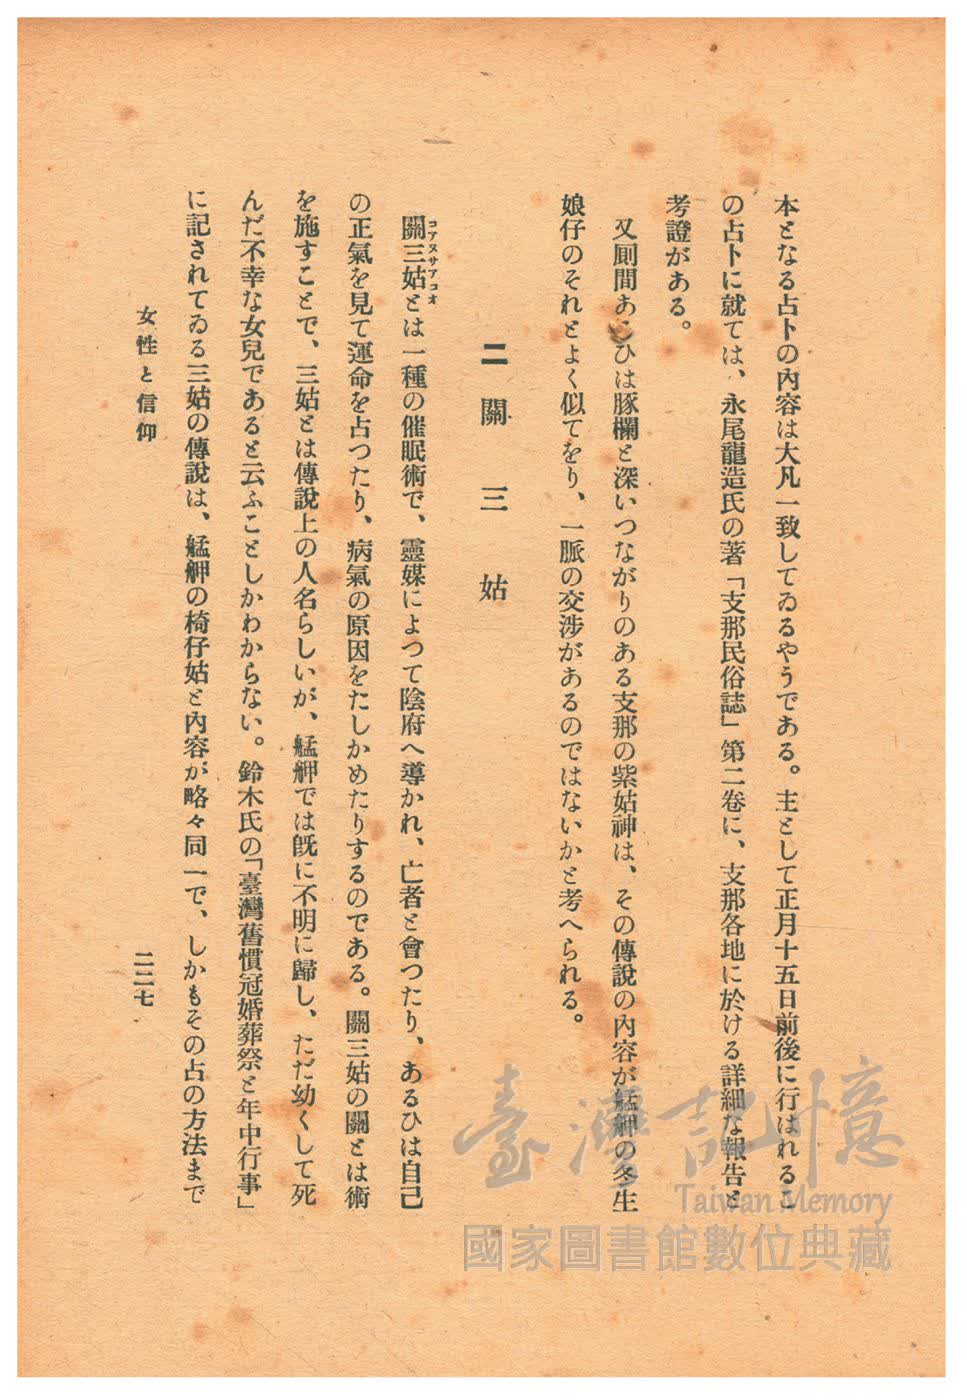 本となる占卜の內容は大凡一致してゐるやうである。主として正月十五日前後に行はれるこ
の占卜に就ては、永尾龍造氏の著「支那民俗誌」第二卷に、支那各地に於ける詳細な報告と
考證がある。
又厠間あ ひは豚欄と深いつながりのある支那の紫姑神は、その傳說の內容が艋舺の冬生
娘仔のそれとよく似てをり、一脈の交涉があるのではないかと考へられる。
二 關三姑
關三姑とは一種の催眠術で、靈媒によつて陰府へ導かれ、亡者と會つたり、あるひは自己
コアヌサアコオ
の正氣を見て運命を占つたり、病氣の原因をたしかめたりするのである。關三姑の關とは術
を施すことで、三姑とは傳說上の人名らしいが、艋舺では既に不明に歸し、ただ幼くして死
んだ不幸な女兒であると云ふことしかわからない。鈴木氏の「臺灣舊慣冠婚葬祭と年中行事」
に記されてゐる三姑の傳說は、艋舺の椅仔姑と內容が略々同一で、しかもその占の方法まで
女性と信仰
二二七
臺灣記憶
Taiwan Memory
國家圖書館數位典藏